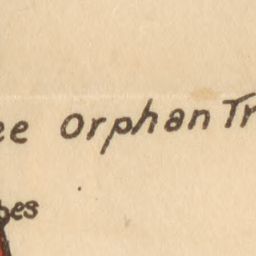 ee Orphan Tr
es